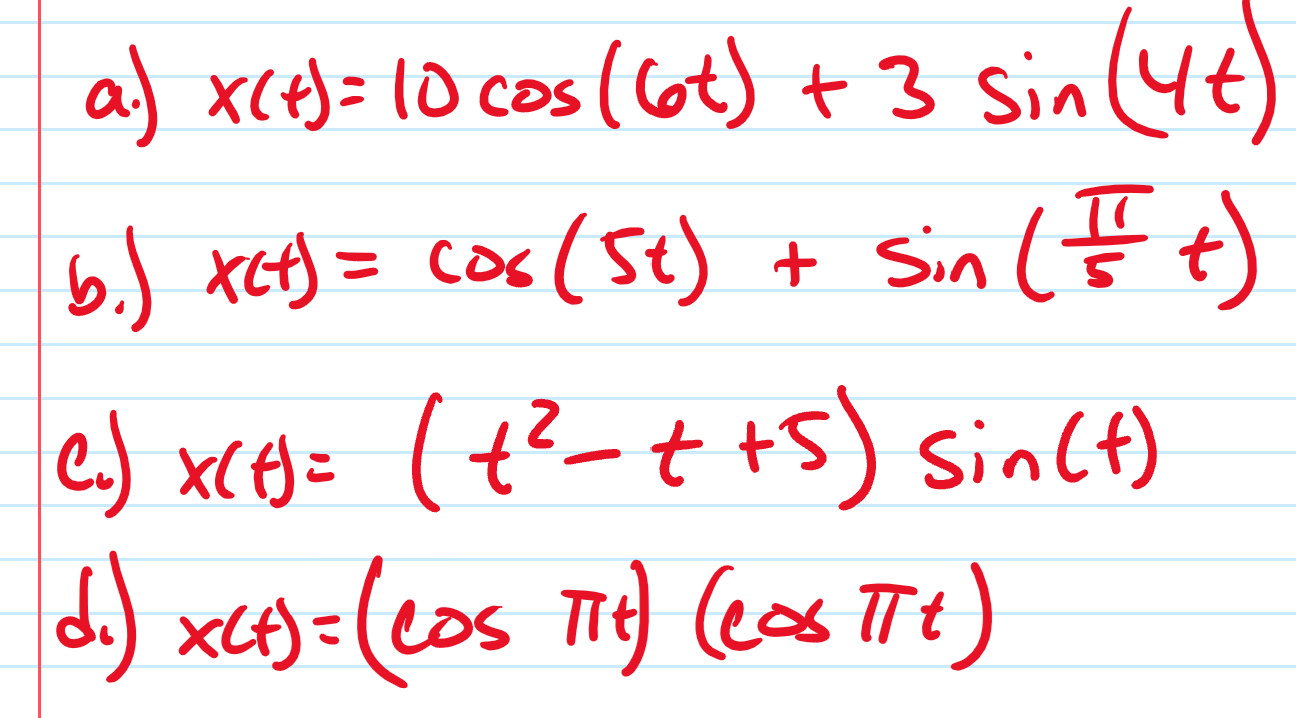 a.) x(t)= 10 cos(6t) + 3 sin(4t)
b.) x(t)= cos(5t) + sin(π/5 t)
c.) x(t)= (t²- t +5) sin(t)
d.) x(t)=(cos πt) (cos πt)